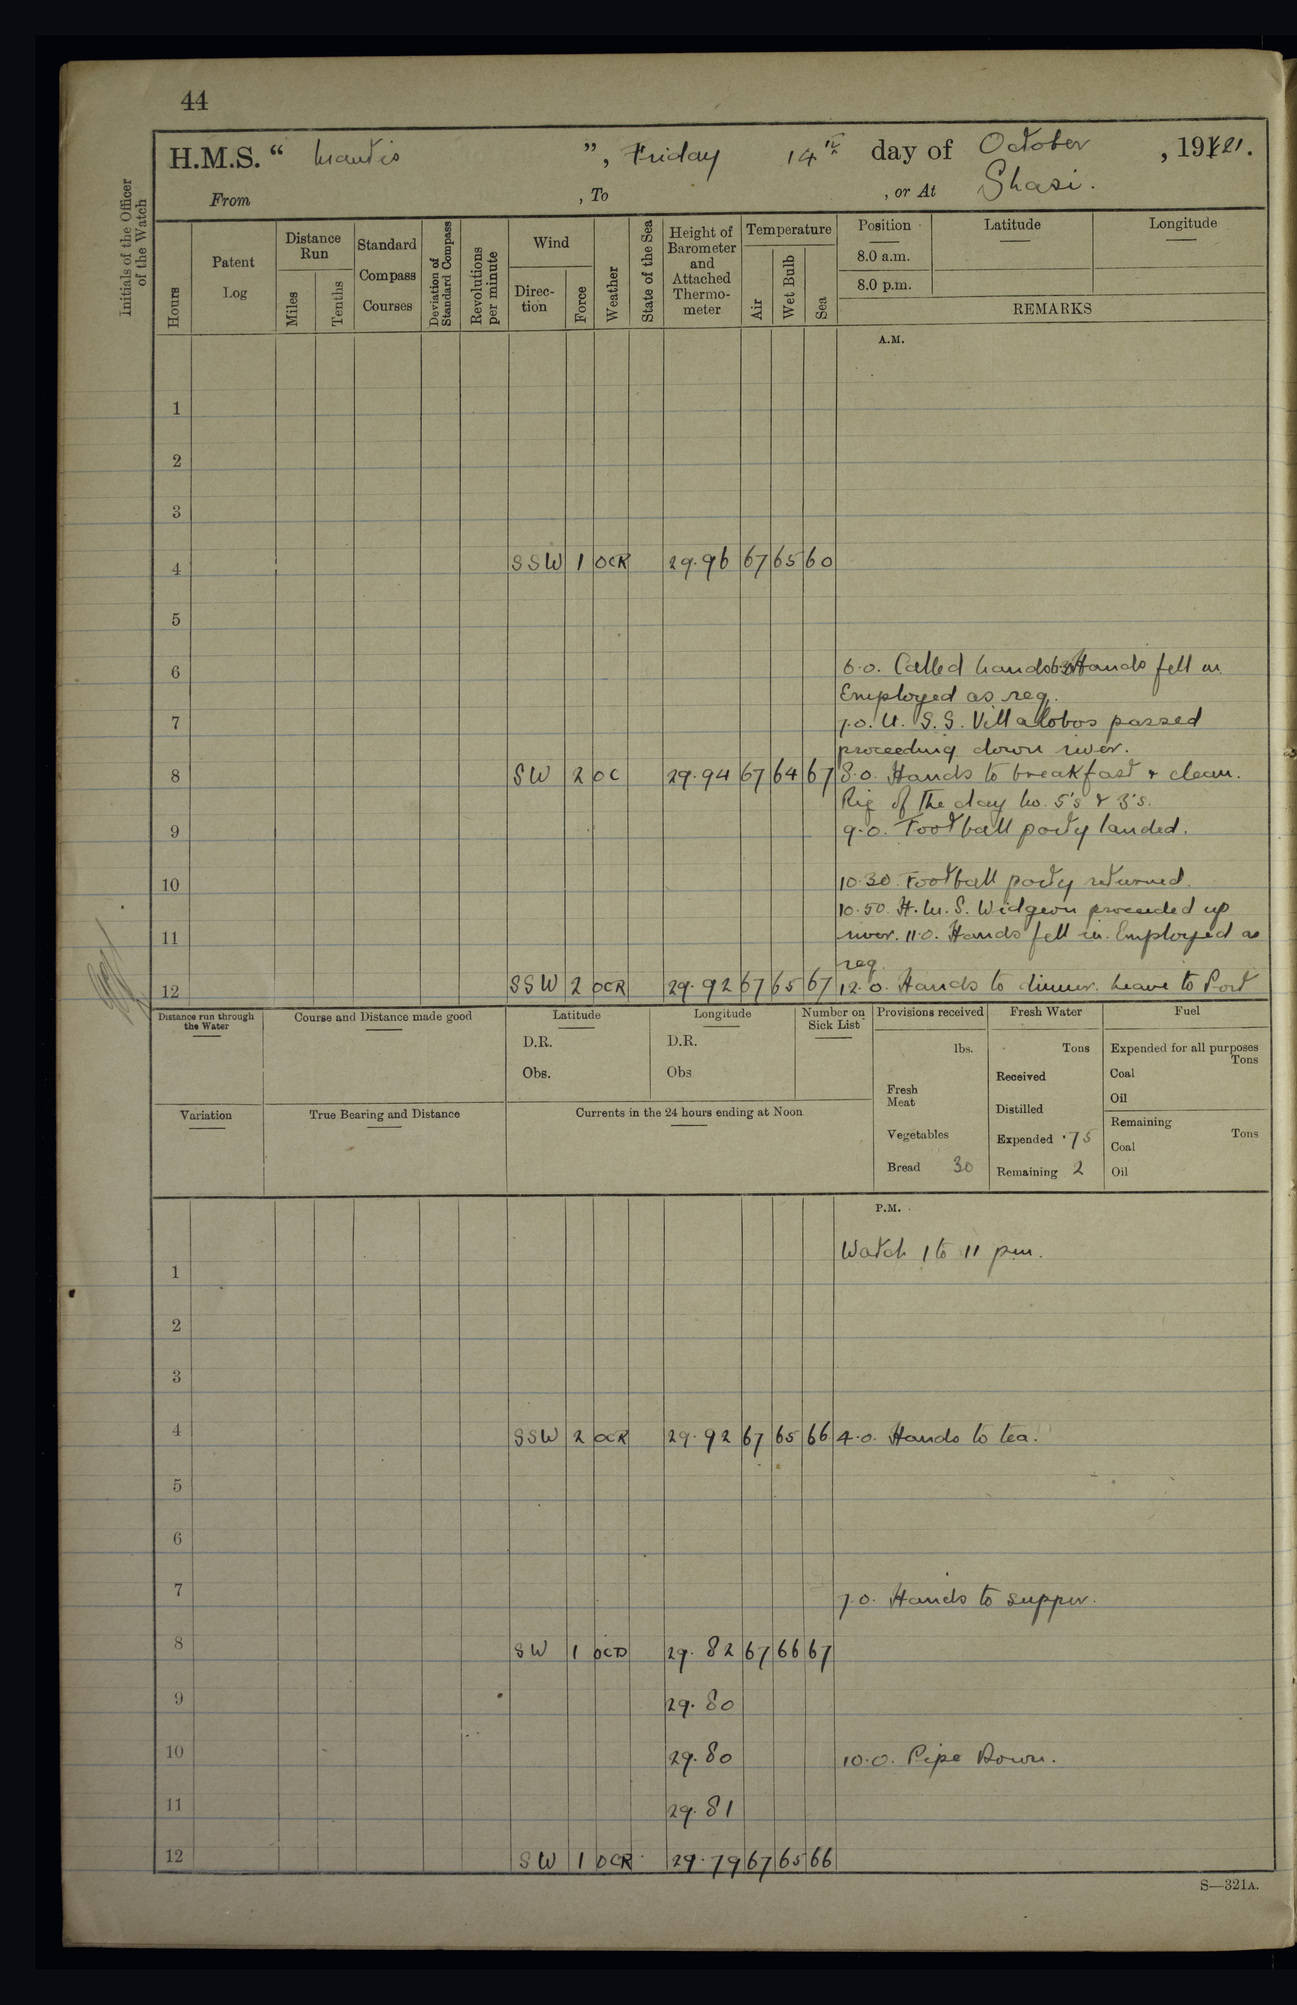 44
H.M.S. “ Mantis ”, Friday 14th day of October, 1921.
From , To , or At Shasi.
Initials of the Officer of the Watch
Hours
Patent Log
Distance Run
Miles
Tenths
Standard Compass Courses
Deviation of Standard Compass
Revolutions per minute
Wind
Direction
Force
Weather
State of the Sea
Height of Barometer and Attached Thermometer
Temperature
Air
Wet Bulb
Sea
Position
8.0 a.m.
8.0 p.m.
Latitude
Longitude
REMARKS
A.M.
1
2
3
4 SSW 1 OCR 29.96 67 65 60
5
6 6.0. Called hands 6.30 Hands fell in
Employed as req.
7 7.0. U.S.S. Villalobos passed
proceeding down river.
8 SW 2 OC 29.94 67 64 67 8.0. Hands to breakfast & clean.
Rig of the day No. 5's & 3's.
9 9.0. Football party landed.
10 10.30. Football party returned.
10.50. H.M.S. Widgeon proceeded up
11 river. 11.0. Hands fell in. Employed as
req.
12 SSW 2 OCR 29.92 67 65 67 12.0. Hands to dinner. Leave to Port
Distance run through the Water
Course and Distance made good
Latitude
D.R.
Obs.
Longitude
D.R.
Obs
Number on Sick List
Provisions received
lbs.
Fresh Meat
Vegetables
Bread 30
Fresh Water
Tons
Received
Distilled
Expended .75
Remaining 2
Fuel
Expended for all purposes
Tons
Coal
Oil
Remaining
Tons
Coal
Oil
Variation
True Bearing and Distance
Currents in the 24 hours ending at Noon
P.M.
Watch 1 to 11 pm.
1
2
3
4 SSW 2 OCR 29.92 67 65 66 4.0. Hands to tea.
5
6
7 7.0. Hands to supper.
8 SW 1 OCD 29.82 67 66 67
9 29.80
10 29.80 10.0. Pipe Down.
11 29.81
12 SW 1 OCR 29.79 67 65 66
S—321A.